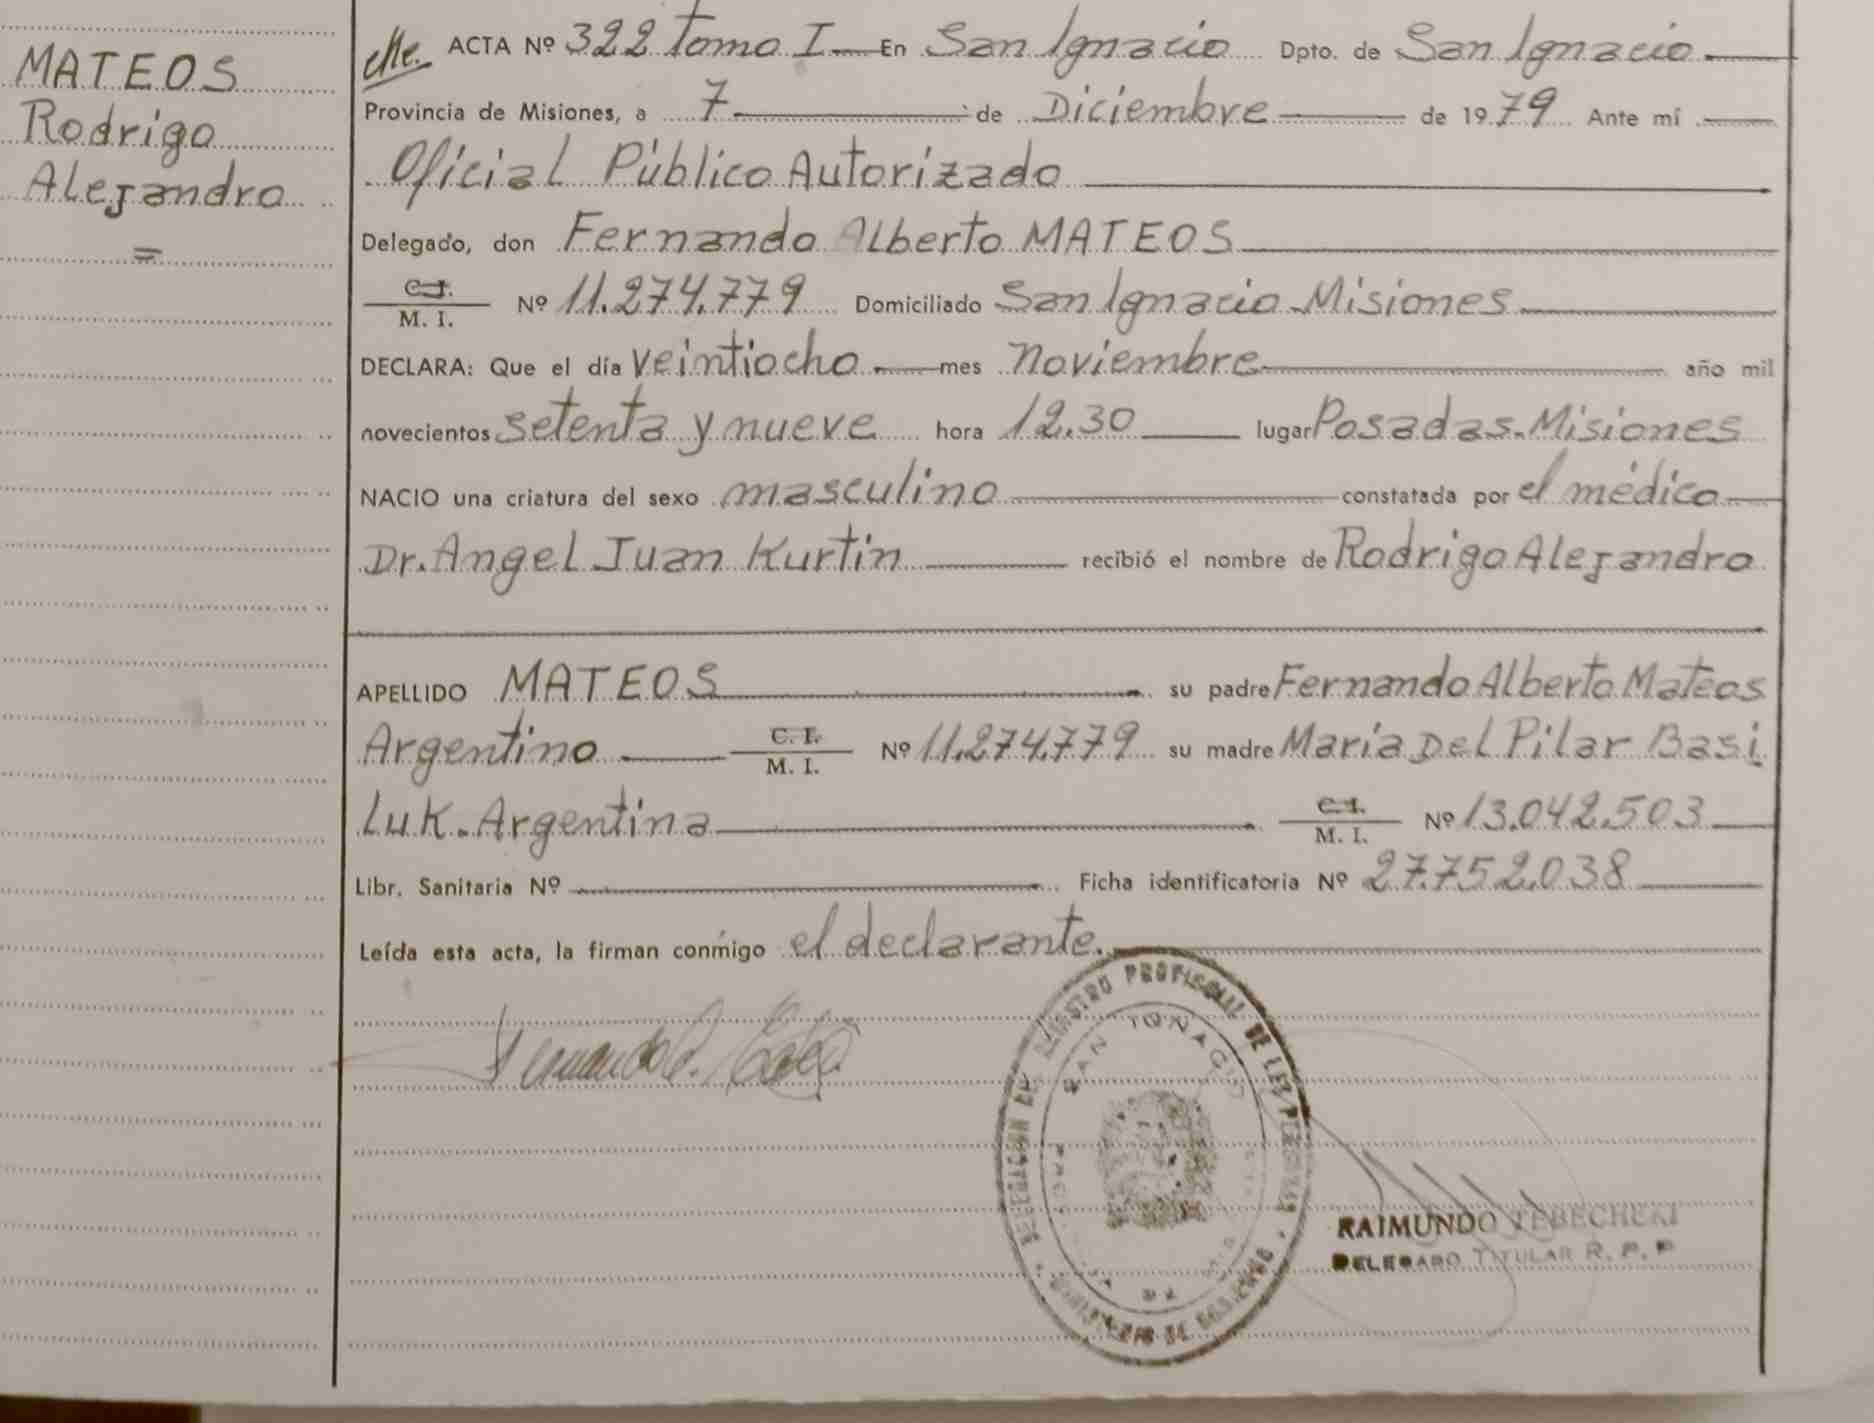 MATEOS
Rodrigo
Alejandro
=
ACTA Nº 322 Tomo I En San Ignacio Dpto. de San Ignacio
Provincia de Misiones, a 7 de Diciembre de 1979 Ante mí
Oficial Público Autorizado
Delegado, don Fernando Alberto MATEOS
C.I.
M. I. Nº 11.274.779 Domiciliado San Ignacio Misiones
DECLARA: Que el día veintiocho mes noviembre año mil
novecientos setenta y nueve hora 12.30 lugar Posadas-Misiones
NACIO una criatura del sexo masculino constatada por el médico
Dr. Angel Juan Kurtin recibió el nombre de Rodrigo Alejandro
APELLIDO MATEOS su padre Fernando Alberto Mateos
Argentino C. I.
M. I. Nº 11.274.779 su madre María Del Pilar Basi
Luk-Argentina C.I.
M. I. Nº 13.042.503
Libr. Sanitaria Nº Ficha identificatoria Nº 27.752.038
Leída esta acta, la firman conmigo el declarante.
SAN IGNACIO
RAIMUNDO
DELEGADO TITULAR R. P. P